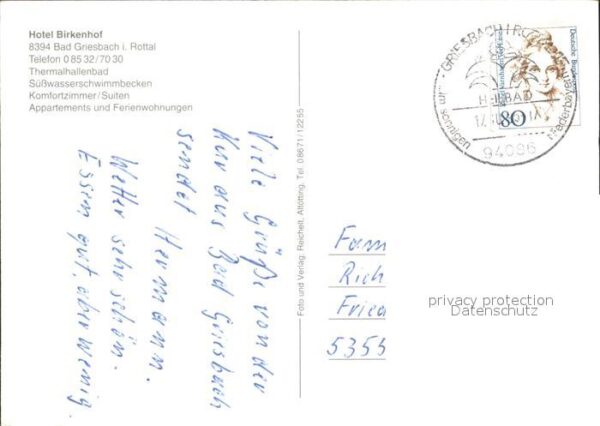 Hotel Birkenhof
8394 Bad Griesbach i. Rottal
Telefon 0 85 32/70 30
Thermalhallenbad
Süßwasserschwimmbecken
Komfortzimmer/Suiten
Appartements und Ferienwohnungen
Viele Grüße von der
Kur aus Bad Griesbach
sendet
Hermann.
Wetter sehr schön.
Essen gut, aber wenig.
Foto und Verlag: Reichelt, Altötting, Tel. 08671/12255
GRIESBACH I. ROTTAL
HEILBAD
im sonnigen
Niederbayern
94086
Deutsche Bundespost
80
Fam
Rich
Fried
5353
privacy protection
Datenschutz